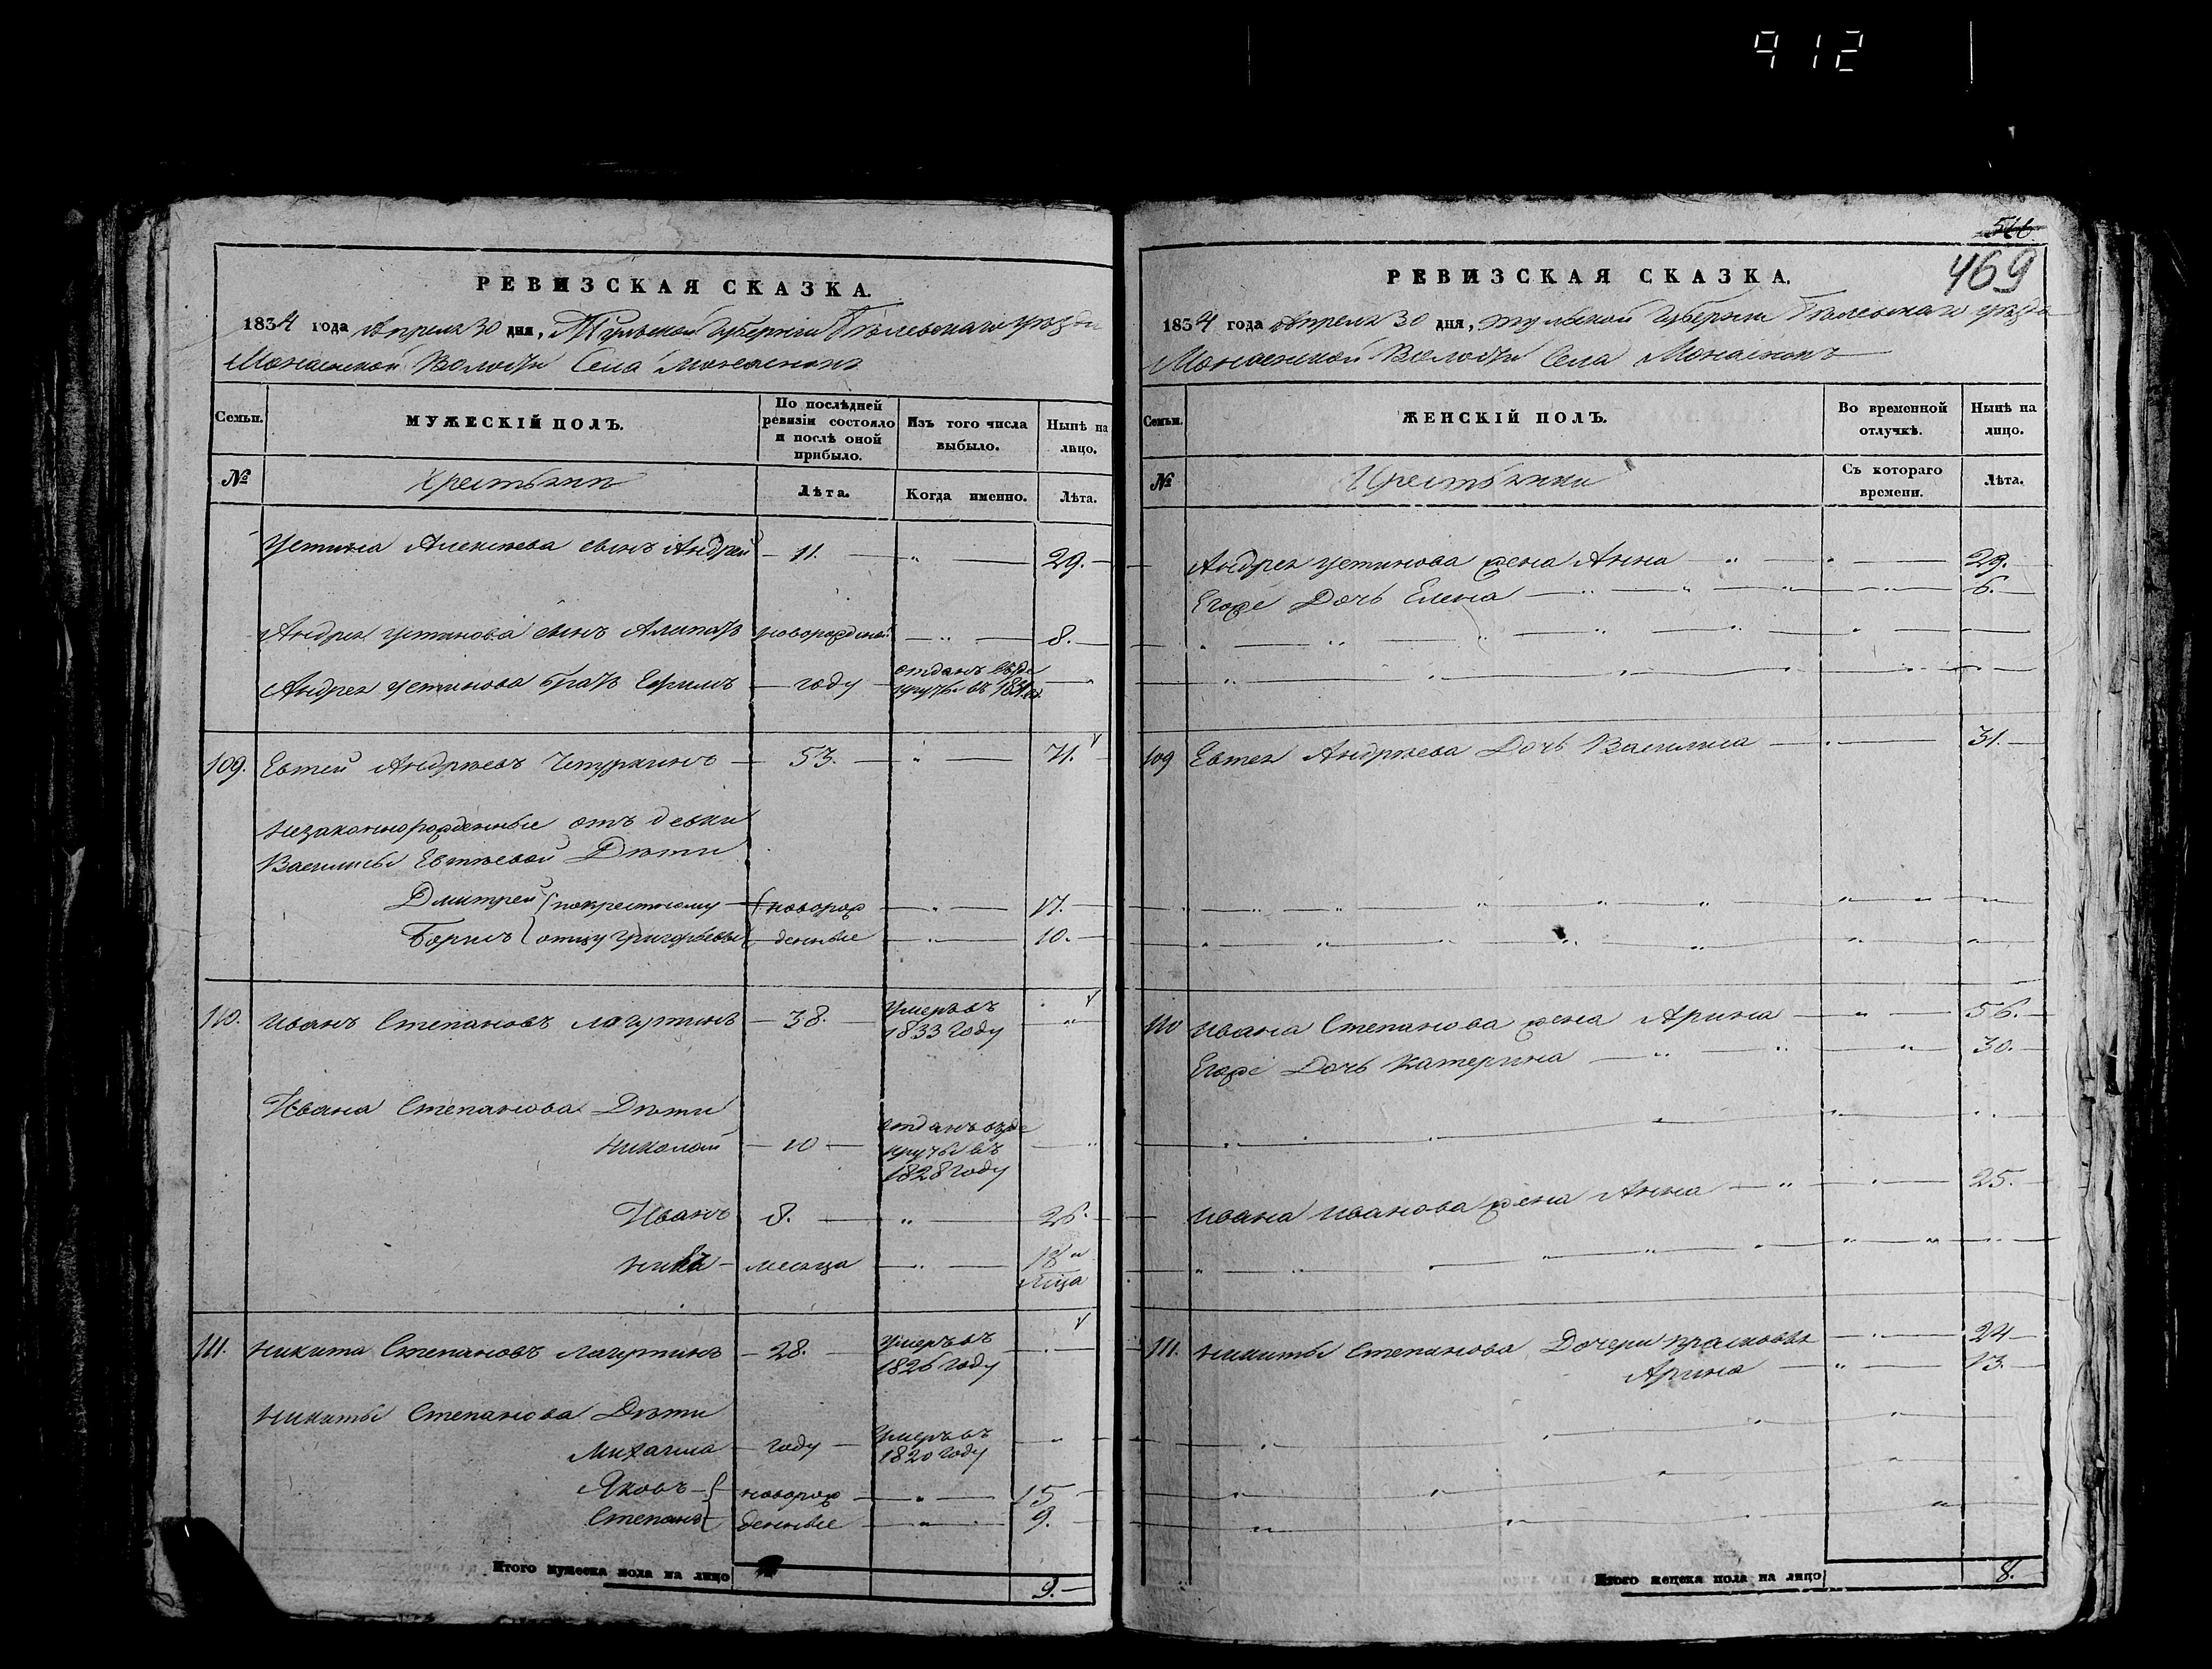 912
РЕВИЗСКАЯ СКАЗКА.
1834 года Апреля 30 дня, Тульской Губернии Белевскаго уезда
Монаенской Волости Села Монаенокъ
Семьи. МУЖЕСКІЙ ПОЛЪ. По послѣдней ревизіи состояло и послѣ оной прибыло. Изъ того числа выбыло. Нынѣ на лицо.
№ Крестьяне Лѣта. Когда именно. Лѣта.
Устина Алексѣева сынъ Андрей 11. " 29.
Андрея Устинова сынъ новорожденой " 8.
Андрея Устинова братъ Ефимъ году отданъ въ ре
круты въ "
109. Евтей Андрѣевъ 53. " 71.
Незаконнорожденные отъ девки
Василисы Евтѣевой Дѣти
Дмитрей покрестному новорож " 17.
Борисъ отцу Григорьевы денные " 10.
110. Иванъ Степановъ Лагутинъ 38. Умеръ въ
1833 году "
Ивана Степанова Дѣти
Николай 10 отданъ въ ре
круты въ "
1828 году
Иванъ 8. " 26.
месяца " 18 и
111. Никита Степановъ Лагутинъ 28. Умеръ въ
1826 году "
Никиты Степанова Дѣти
Михаила году Умеръ въ
1820 году "
Яковъ новорож " 15
Степанъ денные " 9.
Итого мужеска пола на лицо 9.
469
РЕВИЗСКАЯ СКАЗКА.
1834 года Апреля 30 дня, Тульской Губернии Белевскаго уезда
Монаенской Волости Села Монаенокъ
Семьи. ЖЕНСКІЙ ПОЛЪ. Во временной отлучкѣ. Нынѣ на лицо.
№ Крестьянки Съ котораго времени. Лѣта.
Андрея Устинова жена Анна " 29.
Егоже Дочь Елена " 6.
109 Евтея Андрѣева Дочь Василиса " 31.
110 Ивана Степанова жена Арина " 56.
Егоже Дочь Катерина " 30.
Ивана Иванова жена Анна " 25.
111. Никиты Степанова Дочери Прасковья " 24
Арина " 13.
Итого женска пола на лицо 8.